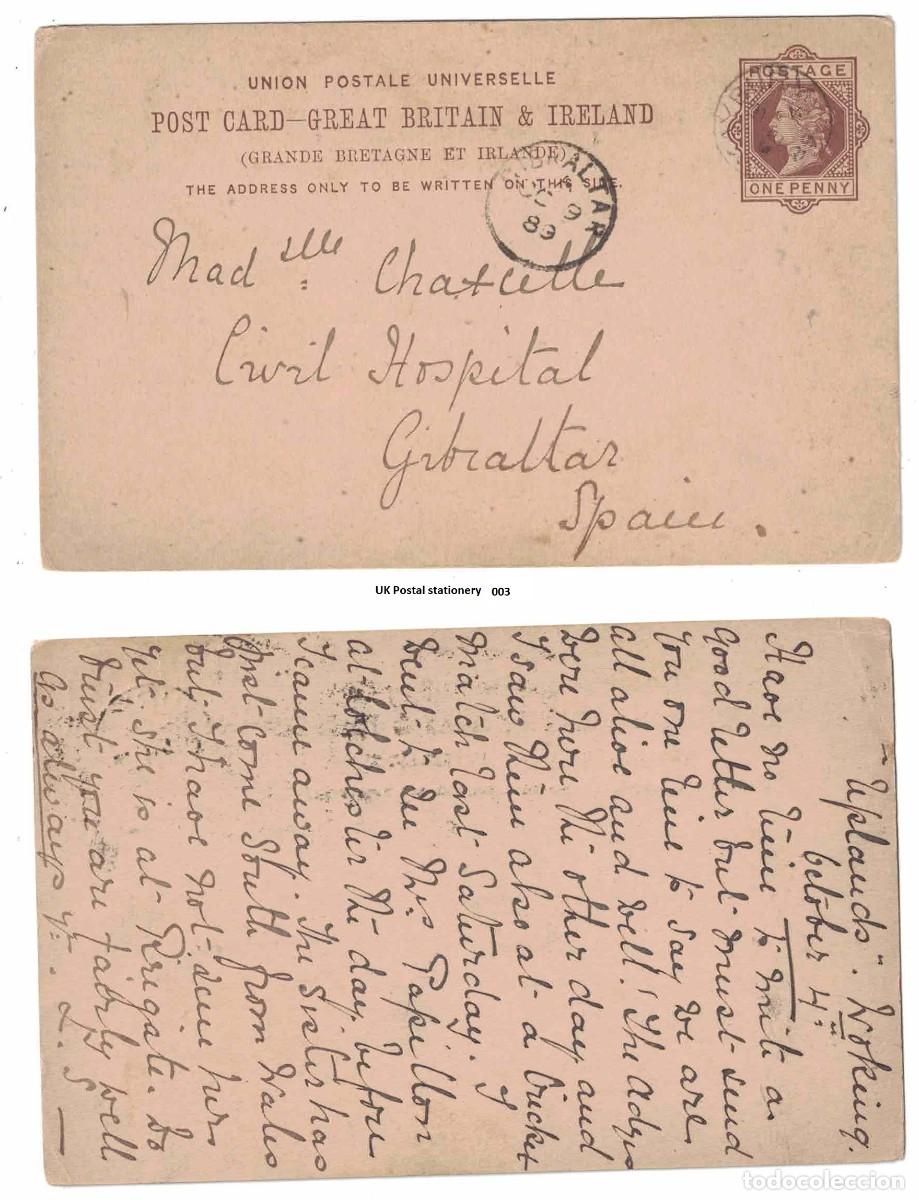 UNION POSTALE UNIVERSELLE
POST CARD—GREAT BRITAIN & IRELAND
(GRANDE BRETAGNE ET IRLANDE)
THE ADDRESS ONLY TO BE WRITTEN ON THIS SIDE.
POSTAGE
ONE PENNY
GIBRALTAR
OC 9
89
Madslle: Chatelle
Civil Hospital
Gibraltar
Spain.
UK Postal stationery 003
"Uplands". Woking.
October 4th
Have no time to write a
good letter but must send
you one line to say we are
all alive and well! The
were here the other day and
I saw them also at a cricket
match last Saturday. I
went to see Mrs Papillon
at Colchester the day before
I came away. The Sister has
just come South from Wales
but I have not seen her
yet she is at Reigate. Do
trust you are fairly well
As always yr. L. S—
todocoleccion